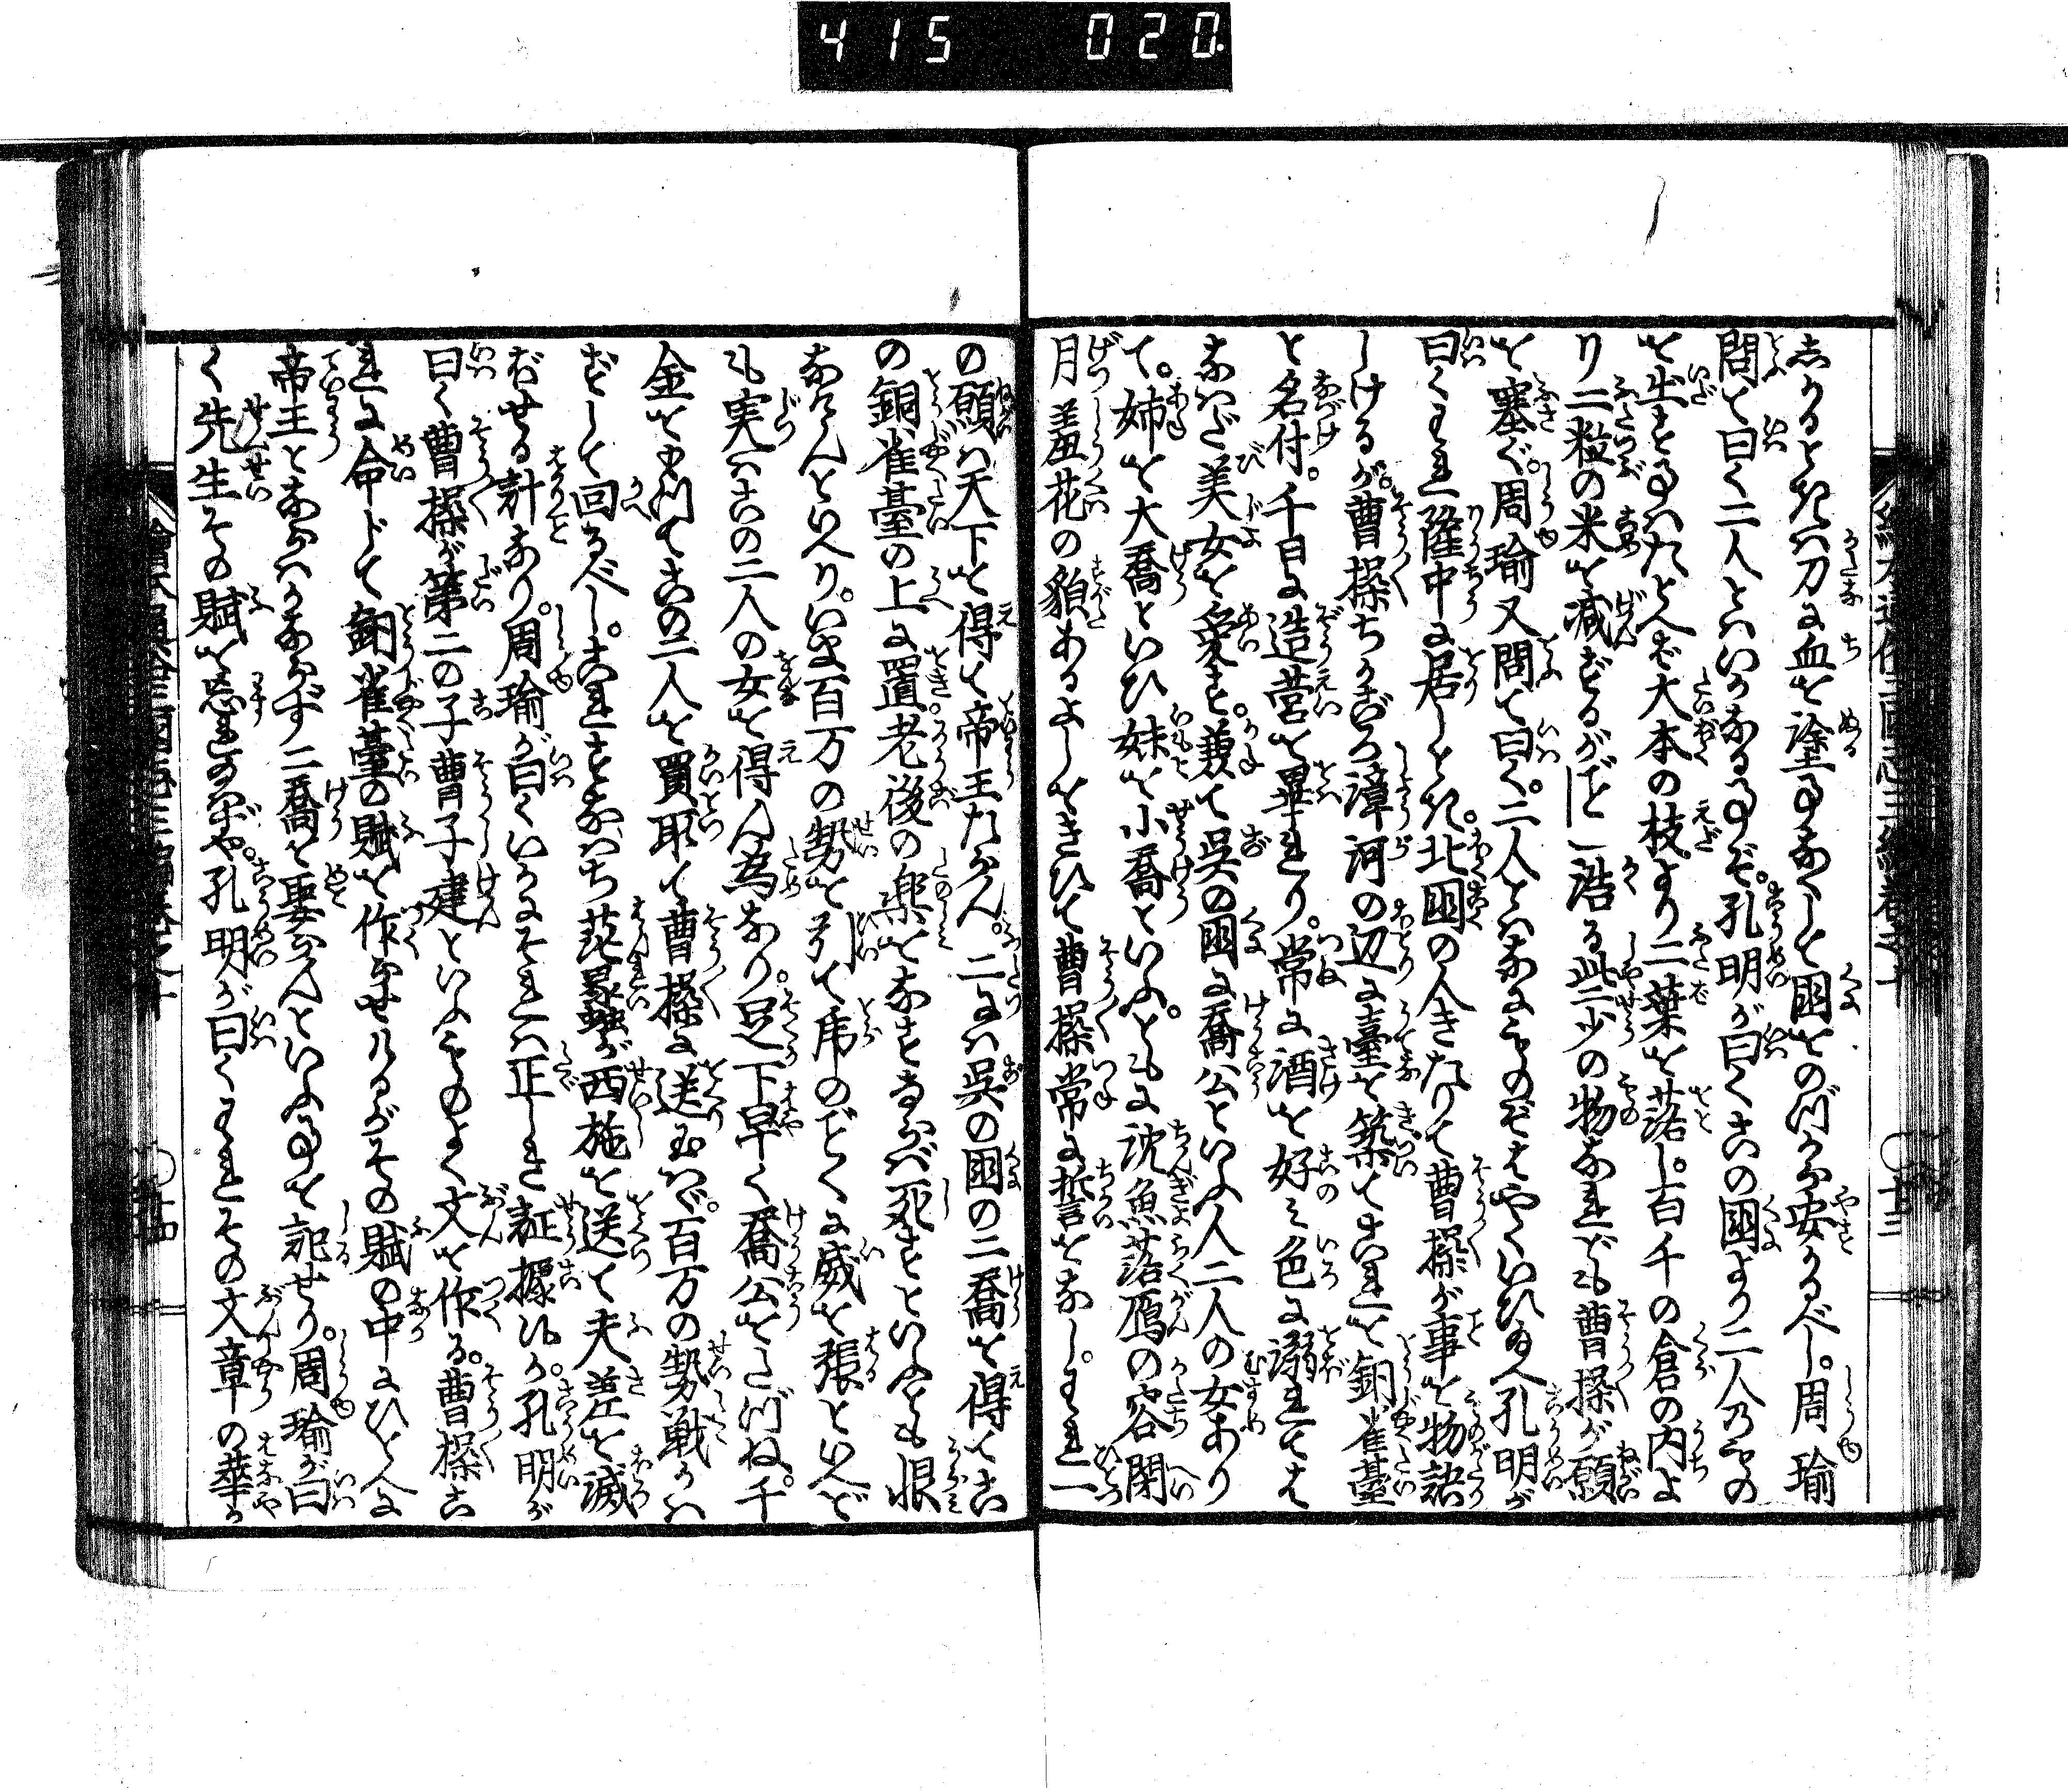 415 020
しかるときハ刀に血を塗る事なくして国をのづから安かるべし。周瑜
問て曰く二人とハいかなる事ぞ。孔明が曰くこの国より二人のもの
を出す事ハたとへバ大木の枝より二葉を落し。百千の倉の内よ
り二粒の米を減ずるがごとし
を塞ぐ。周瑜又問て曰く。二人とハなにものぞはやくいひ給へ孔明が
曰くわれ隆中に居しとき。北国の人きたりて曹操が事を物語
しけるが。曹操ちかごろ漳河の辺に臺を築てこれを銅雀臺
と名付。千日に造営を畢れり。常に酒を好み色に溺れては
なハだ美女を愛す。兼て呉の国に喬公といふ人二人の女あり
て。姉を大喬といひ妹を小喬といふ。ともに沈魚落鴈の容閉
月羞花の貌あるよしをきひて曹操常に誓をなし。われ一
の願ハ天下を得て帝王たらん。二にハ呉の国の二喬を得てこ
の銅雀臺の上に置老後の楽をなすならバ死すといふとも恨
なけんといへり。いま百万の勢を引て虎のごとくに威を張といへど
も実ハこの二人の女を得ん為なり。足下早く喬公をたづね。千
金をもつてこの二人を買取て曹操に送玉ハゞ。百万の勢戦ハ
ずして回るべし。これすなハち范蠡が西施を送て夫差を滅
ぼせる計なり。周瑜が曰くいかにそれハ正しき証據候か。孔明が
曰く曹操が第二の子曹子建といふものよく文を作る。曹操こ
れに命じて銅雀臺の賦を作らせけるがその賦の中にひとへに
帝王とならハかならず二喬を娶らんといふ事を記せり。周瑜が曰
く先生その賦を忘れ玉ハずや。孔明が曰くわれその文章の華か